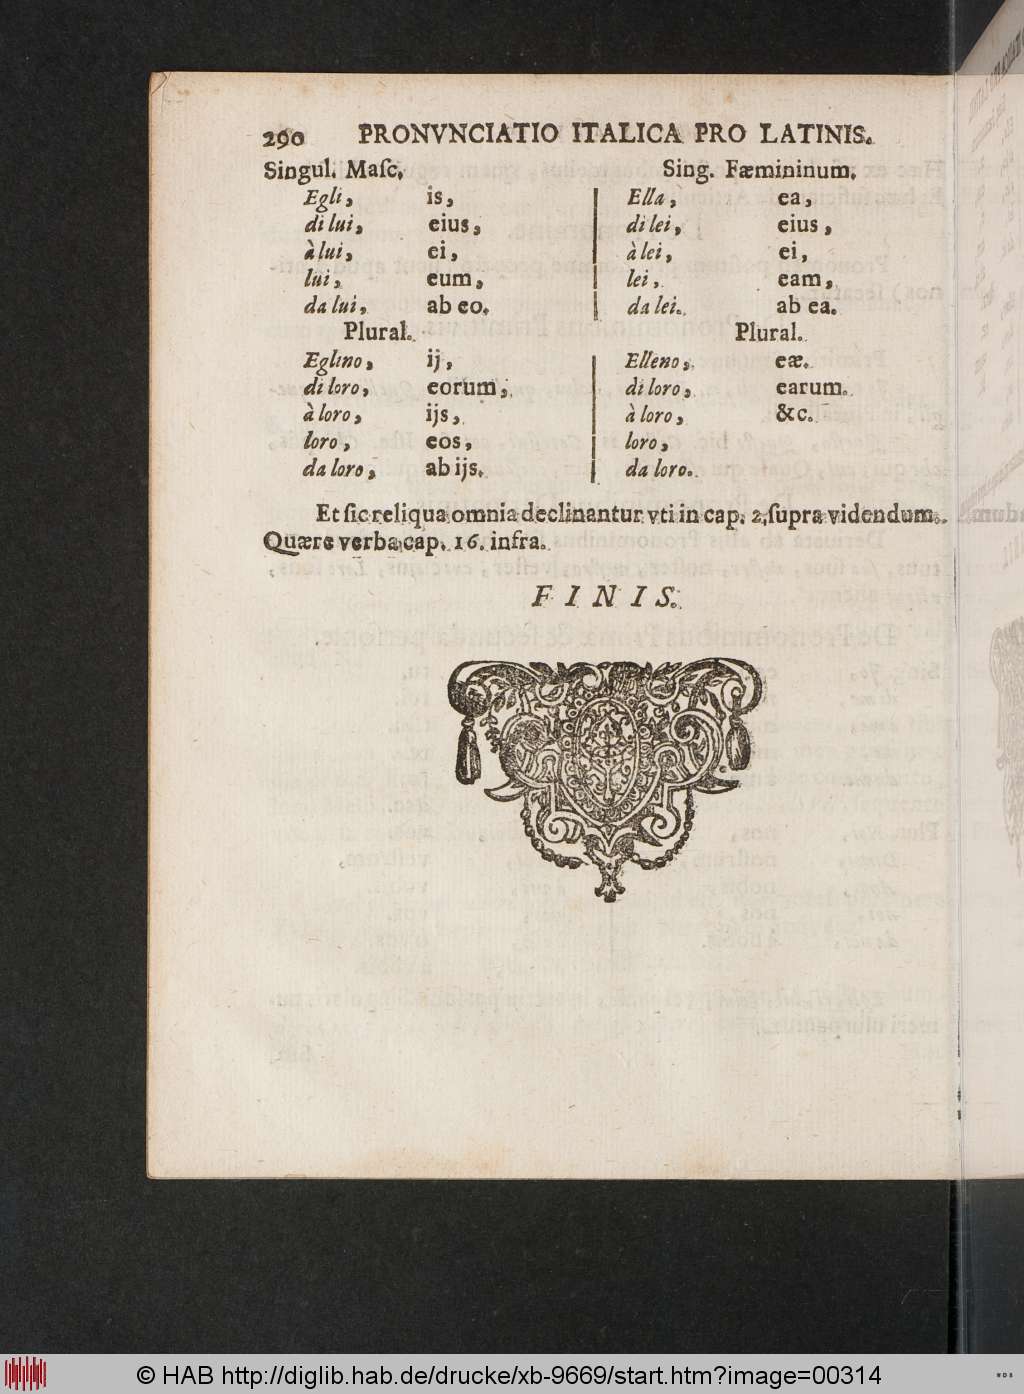 290 PRONVNCIATIO ITALICA PRO LATINIS.
Singul. Maſc. Sing. Fæmininum.
Egli, is, Ella, ea,
di lui, eius, di lei, eius,
à lui, ei, à lei, ei,
lui, eum, lei, eam,
da lui, ab eo. da lei. ab ea.
Plural. Plural.
Eglino, ij, Elleno, eæ.
di loro, eorum, di loro, earum.
à loro, ijs, à loro, &c.
loro, eos, loro,
da loro, ab ijs. da loro.
Et ſic reliqua omnia declinantur vti in cap. 2, ſupra videndum.
Quære verba cap. 16. infra.
FINIS.
© HAB http://diglib.hab.de/drucke/xb-9669/start.htm?image=00314